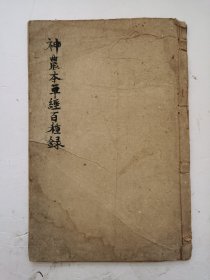 神農本草經百種録